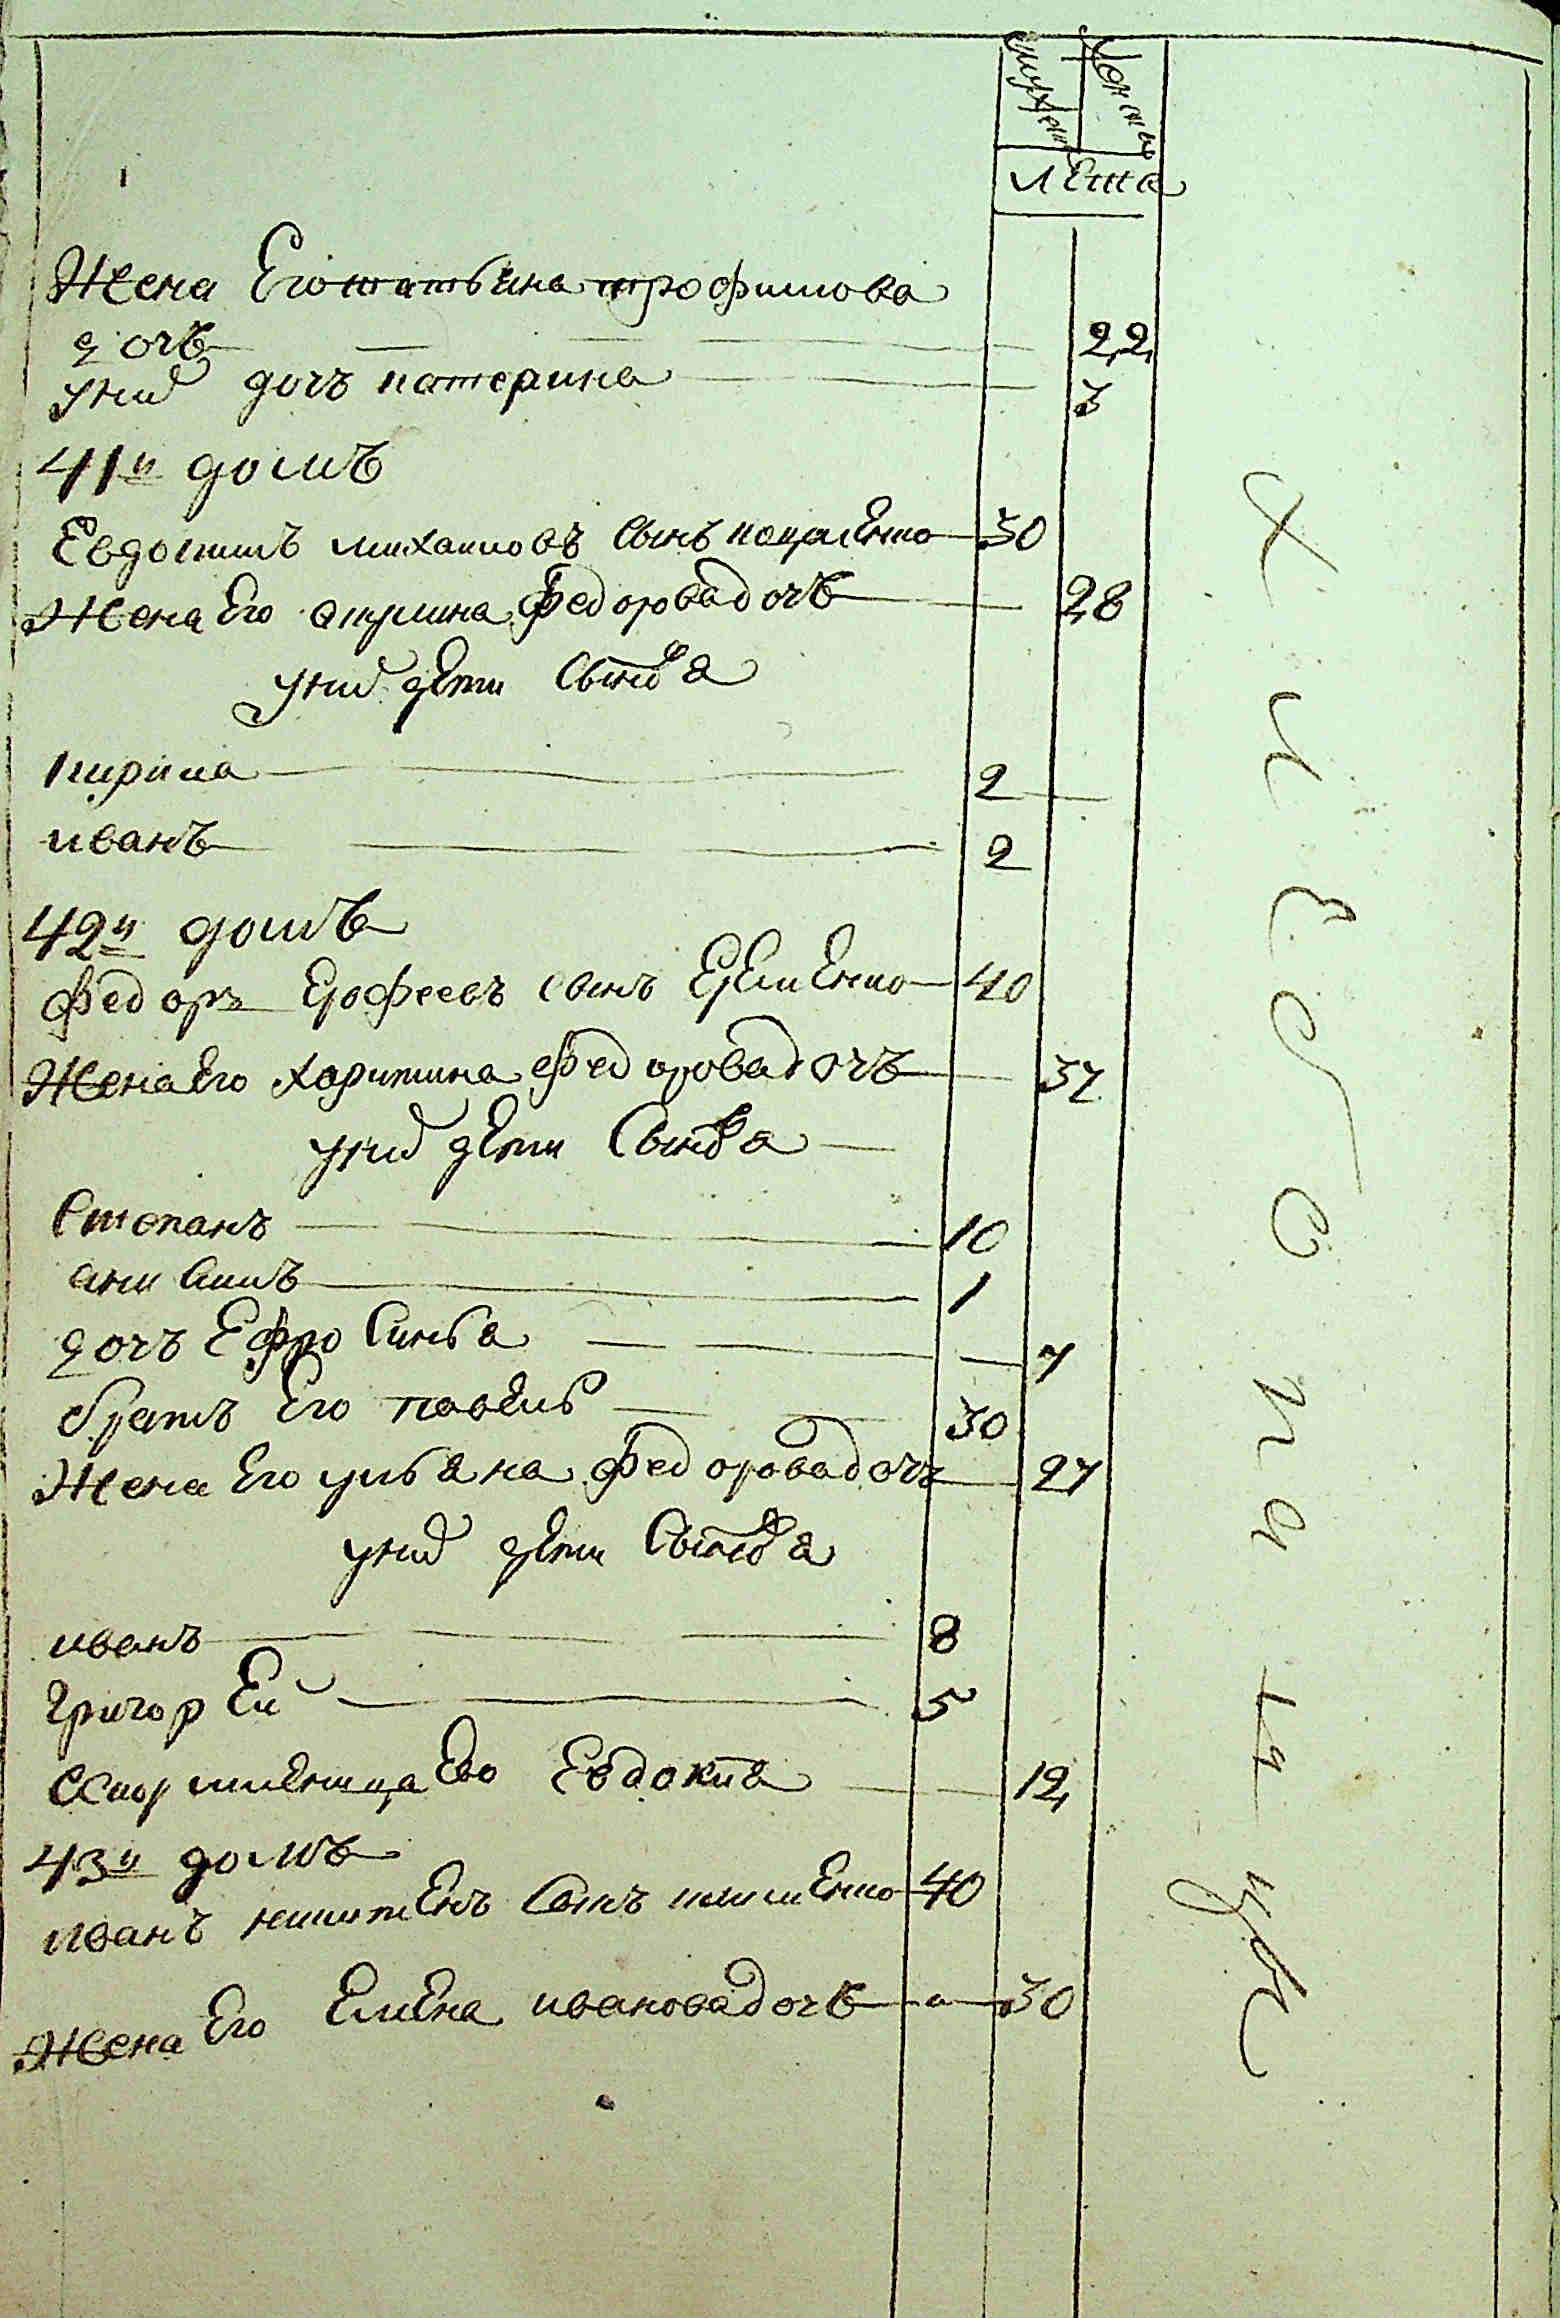 мужеск женска
лета
Жена Его татьяна трофимова
дочь 22
у них дочь катерина 3
41й домъ
Евдокимъ михаиловъ сынъ коцаленко 30
Жена Его акулина федорова дочь 28
у них дети сынов'я
кирила 2
иванъ 2
42й домъ
федоръ Ерофеевъ сынъ Еременко 40
Жена Его харитина федорова дочь 37
у них дети сынов'я
Стопанъ 10
анисимъ 1
дочь Ефросинья 7
братъ Его павелъ 30
Жена Его ульяна федорова дочь 27
у них дети сынов'я
иванъ 8
григорей 5
Евдокия 12
43й домъ
иванъ никитенъ сынъ клименко 40
Жена Его Елена иванова дочь 30
хлебопашцы